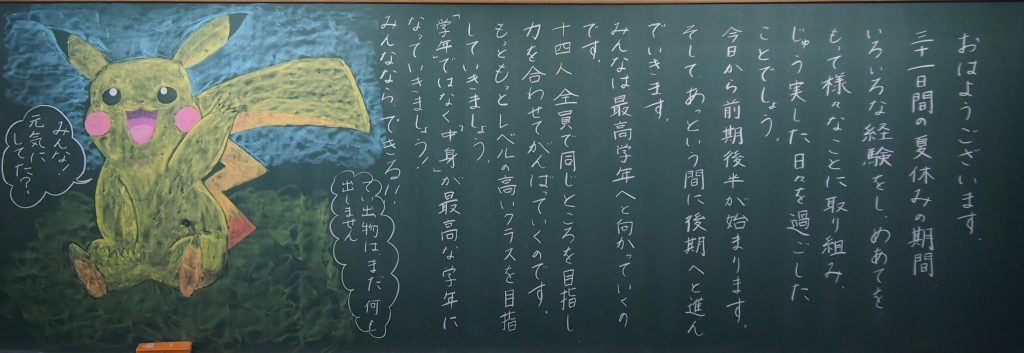 おはようございます。
三十一日間の夏休みの期間、
いろいろな経験をし、めあてを
もって様々なことに取り組み、
じゅう実した日々を過ごした
ことでしょう。
今日から前期後半が始まります。
そして、あっという間に後期へと進ん
でいきます。
みんなは最高学年へと向かっていくの
です。
十四人全員で同じところを目指し
力を合わせてがんばっていくのです。
もっともっとレベルの高いクラスを目指
していきましょう。
「学年」ではなく「中身」が最高な学年に
なっていきましょう!
みんなならできる!!
てい出物は、まだ何も
出しません
みんな!
元気に
してた?